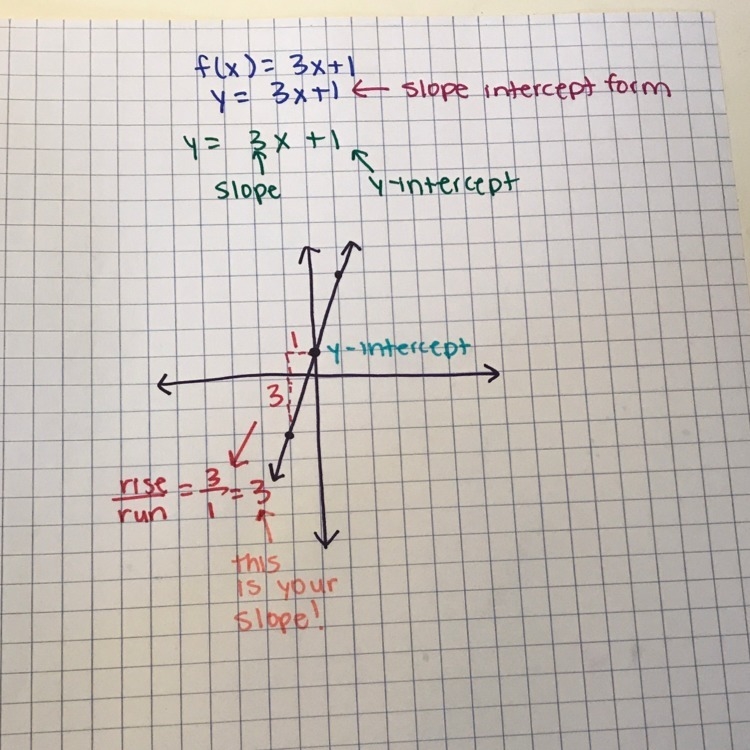 f(x) = 3x+1
y = 3x+1 ← slope intercept form
y = 3x +1
slope
y-intercept
1
y-intercept
3
rise/run = 3/1 = 3
this
is your
slope!